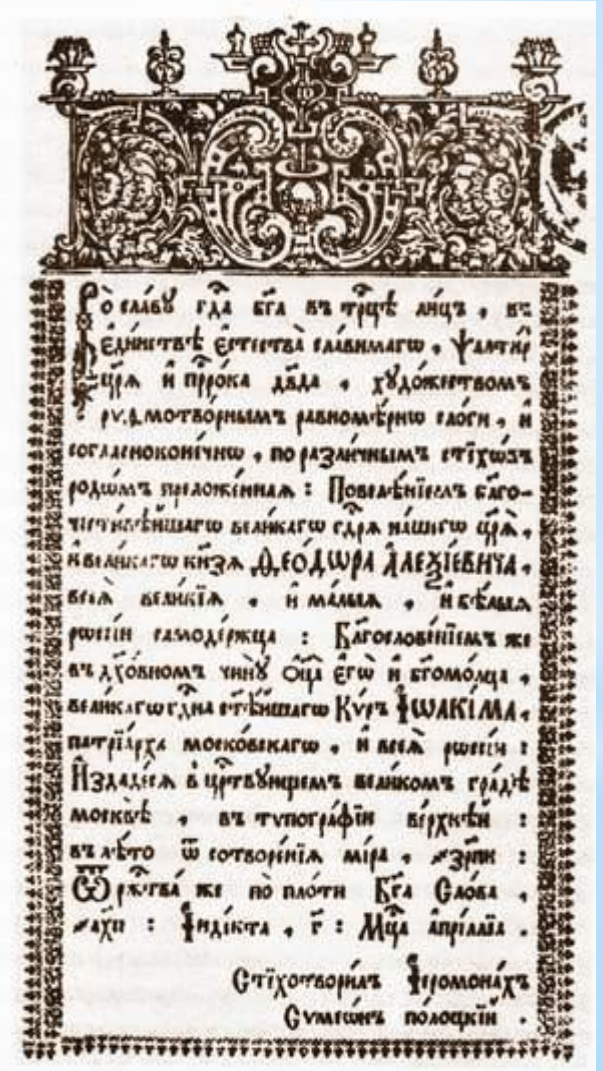 Во славу гдⷭ҇а бг҃а въ трⷪ҇цѣ лиц̾ , въ
Єди́нствѣ Єстества̀ славимагѡ , Ѱалти́р
цр҃ѧ̀ и҆ прⷪ҇рока дв҃да , худо́жеством̾
мотворным̾ равномѣ́рнѡ слоги , и҆
согласноконе́чнѡ , по разли́чным̾ стїхѡ́въ
родѡ́м̾ преложе́ннаѧ : Повелѣ́нїем̾ бл҃го-
чести́вѣйшагѡ вели́кагѡ гдⷭ҇рѧ на́шегѡ цр҃ѧ̀ ,
и҆ вели́кагѡ кнѧ́зѧ ѲЕО́ДѠРА А҆ЛЕѮІ́ЕВИЧА ,
всеѧ̀ вели́кїѧ , и҆ ма́лыѧ , и҆ бѣ́лыѧ
рѡссі́и самоде́ржца : Бл҃гослове́нїем̾ же
въ дх҃о́вномъ чи́нꙋ Ѻц҃а̀ Єгѡ̀ и҆ бг҃омо́лца ,
вели́кагѡ гдⷭ҇на ст҃ѣ́йшагѡ Кѵ́ръ І҆ѠАКІ́МА ,
патрїа́рха моско́вскагѡ , и҆ всеѧ̀ рѡссі́и :
И҆зда́десѧ в̾ црⷭ҇твꙋющем̾ вели́ком̾ гра́дѣ
москвѣ̀ , въ тѵпогра́фїи ве́рхнѣй :
въ лѣ́то ѿ сотворе́нїѧ мі́ра , ҂зр҃пи :
Ѿ ржⷭ҇тва́ же по пло́ти Бг҃а Сло́ва ,
҂ах҃п : І҆нді́кта , г҃ : Мцⷭ҇а а҆прі́ллїа .
Стїхотвори́лъ І҆еромона́хъ
Сѵмеѡ́нъ по́лоцкїй .